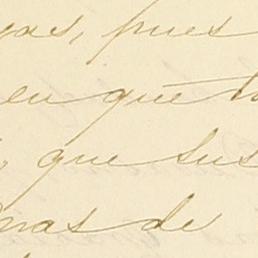 yas, pues
en que
que sus
nas de